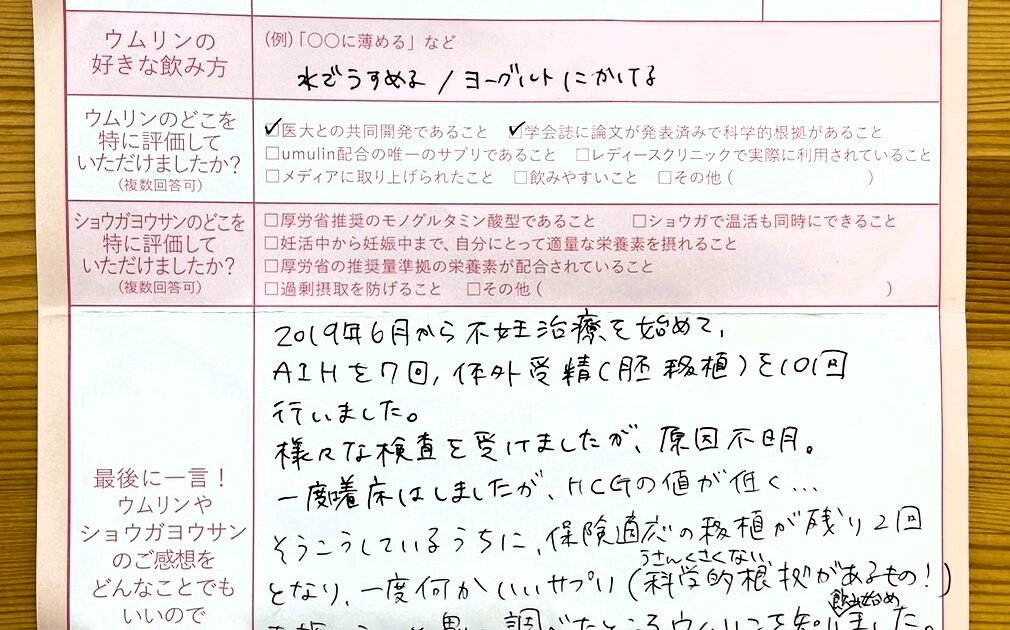 ウムリンの
好きな飲み方
(例)「〇〇に薄める」など
水でうすめる / ヨーグルトにかける
ウムリンのどこを
特に評価して
いただけましたか?
(複数回答可)
☑医大との共同開発であること ☑学会誌に論文が発表済みで科学的根拠があること
□umulin配合の唯一のサプリであること □レディースクリニックで実際に利用されていること
□メディアに取り上げられたこと □飲みやすいこと □その他 ( )
ショウガヨウサンのどこを
特に評価して
いただけましたか?
(複数回答可)
□厚労省推奨のモノグルタミン酸型であること □ショウガで温活も同時にできること
□妊活中から妊娠中まで、自分にとって適量な栄養素を摂れること
□厚労省の推奨量準拠の栄養素が配合されていること
□過剰摂取を防げること □その他 ( )
最後に一言!
ウムリンや
ショウガヨウサン
のご感想を
どんなことでも
いいので
2019年6月から不妊治療を始めて、
AIHを7回, 体外受精(胚移植)を10回
行いました。
様々な検査を受けましたが、原因不明。
一度着床はしましたが、HCGの値が低く…
そうこうしているうちに、保険適応の移植が残り2回
うさんくさくない、
となり、一度何かいいサプリ(科学的根拠があるもの!)
飲み始め
と思い調べたところウムリンを知りました。